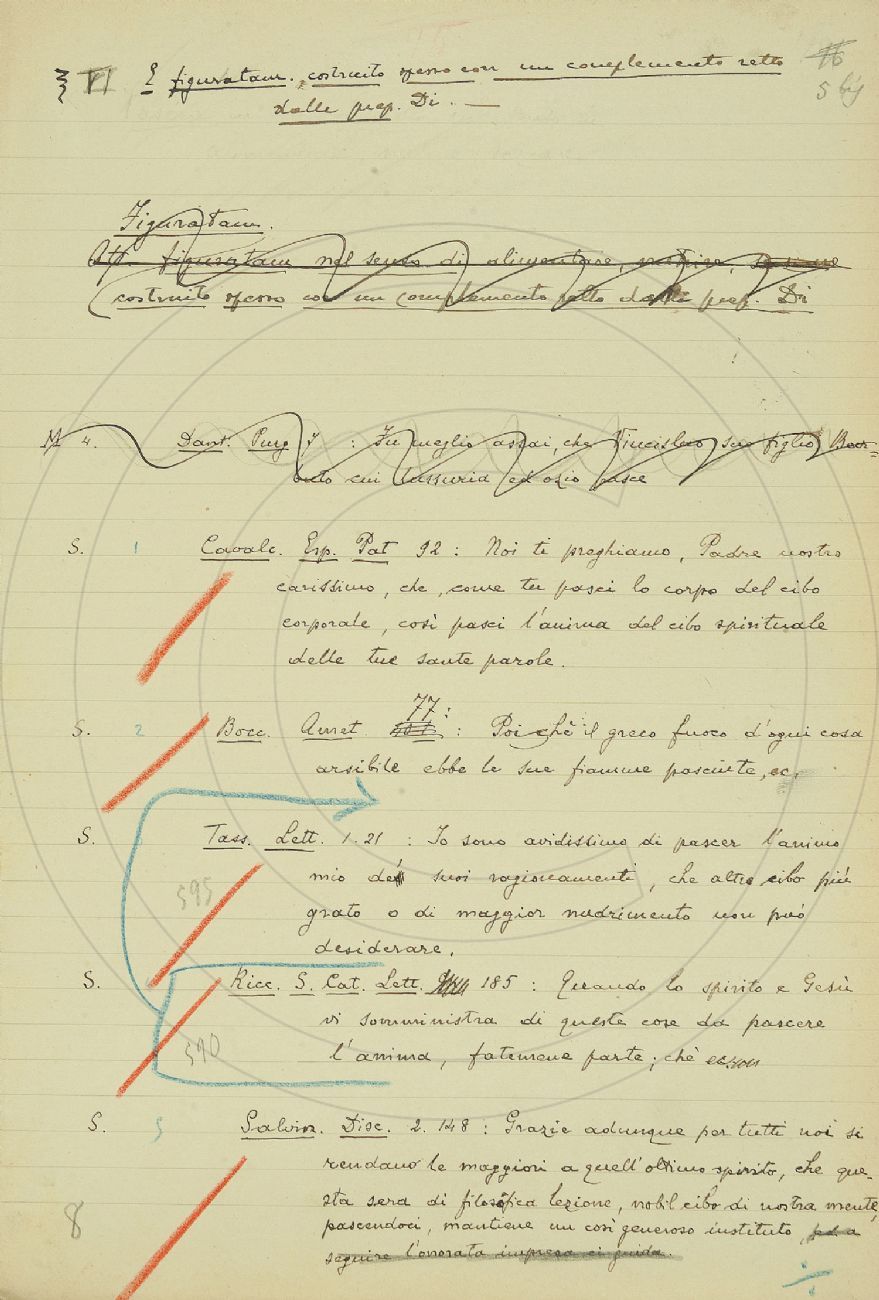 § VI E figuratam. costruito spesso con un complemento retto 
5 bis
dalla prep. Di. —
Figuratam.
Att. figuratam nel senso di alimentare, nutrire,
costruito spesso con un complemento retto dalla prep. Di
M 4. Dant. Purg 7 : Fu meglio assai, che Vincislao suo figlio Bar=
buto cui lussuria ed ozio pasce
S. 1 Cavalc. Esp. Pat 92 : Noi ti preghiamo, Padre nostro
carissimo, che, come tu pasci lo corpo del cibo
corporale, così pasci l'anima del cibo spirituale
delle tue sante parole.
S. 2 Bocc. Amet. 77: : Poichè il greco fuoco d'ogni cosa
arsibile ebbe le sue fiamme pasciute, ec.
S. Tass. Lett. 1.21 : Io sono avidissimo di pascer l'animo
mio de' suoi ragionamenti, che altro cibo più
595
grato o di maggior nudrimento non può
desiderare.
S. Ricc. S. Cat. Lett. 185 : Quando lo spirito e Gesù
vi somministra di queste cose da pascere
590
l'anima, fatemene parte; chè
S. 5 Salvin. Disc. 2. 148 : Grazie adunque per tutti noi si
rendano le maggiori a quell'ottimo spirito, che que-
sta sera di filosofica lezione, nobil cibo di nostra mente,
8
pascendoci, mantiene un così generoso instituto, ed a
seguire l'onorata impresa ci guida.